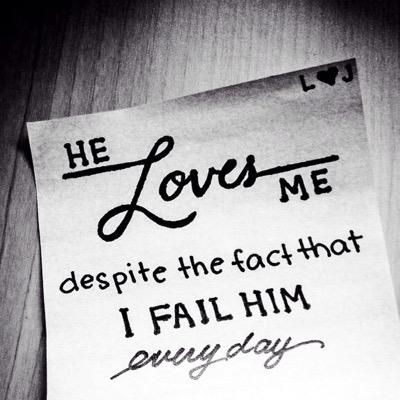 L ♥ J
HE
Loves
ME
despite the fact that
I FAIL HIM
every day